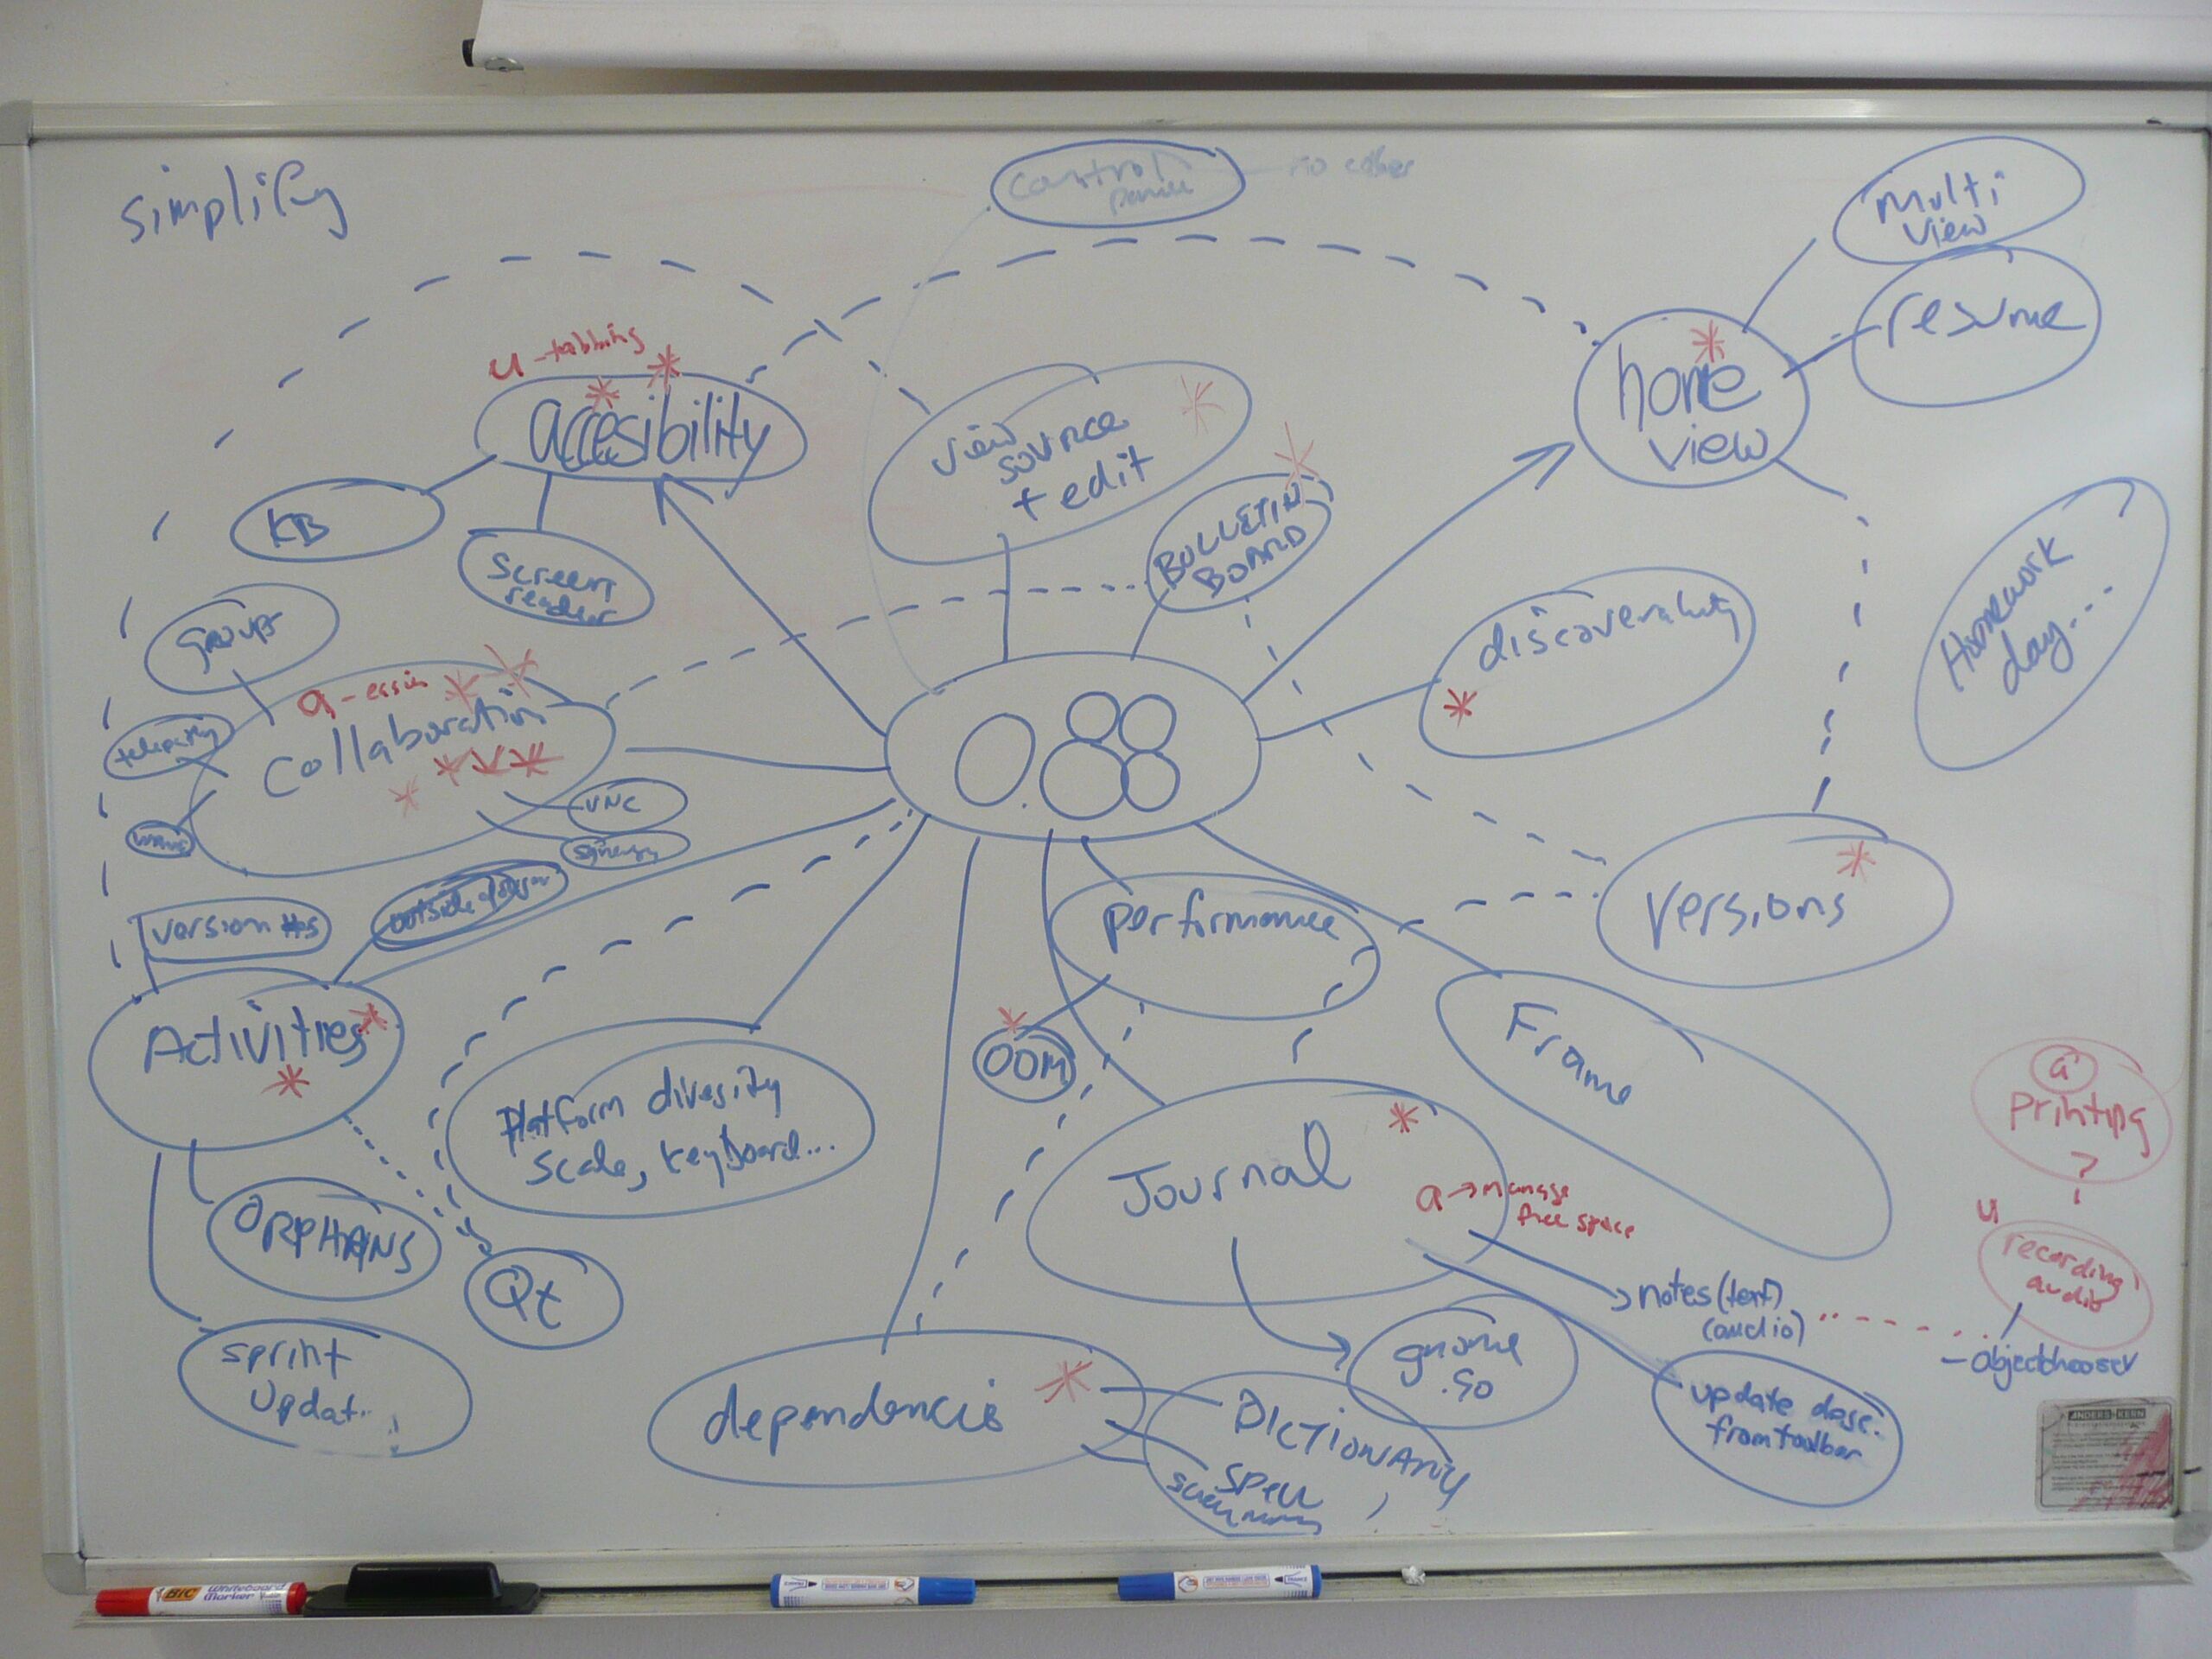 simplify
control
Multi
View
resume
home
view
u - tabbing
accesibility
KB
screen
reader
view
source
+ edit
BULLETIN
BOARD
discoverability
Homework
day...
groups
a -
Collaboration
telepathy
VNC
synergy
0.88
version #s
Activities
ORPHANS
sprint
updat..
Qt
Platform diversity
scale, keyboard...
performance
OOM
versions
Frame
Journal
a → manage
free space
notes (text)
(audio)
gnome
.so
update desc.
from toolbar
a
printing
?
u
recording
audio
- objectchooser
dependencis
DICTIONARY
SPELL
ANDERS+KERN
BIC Whiteboard
Marker